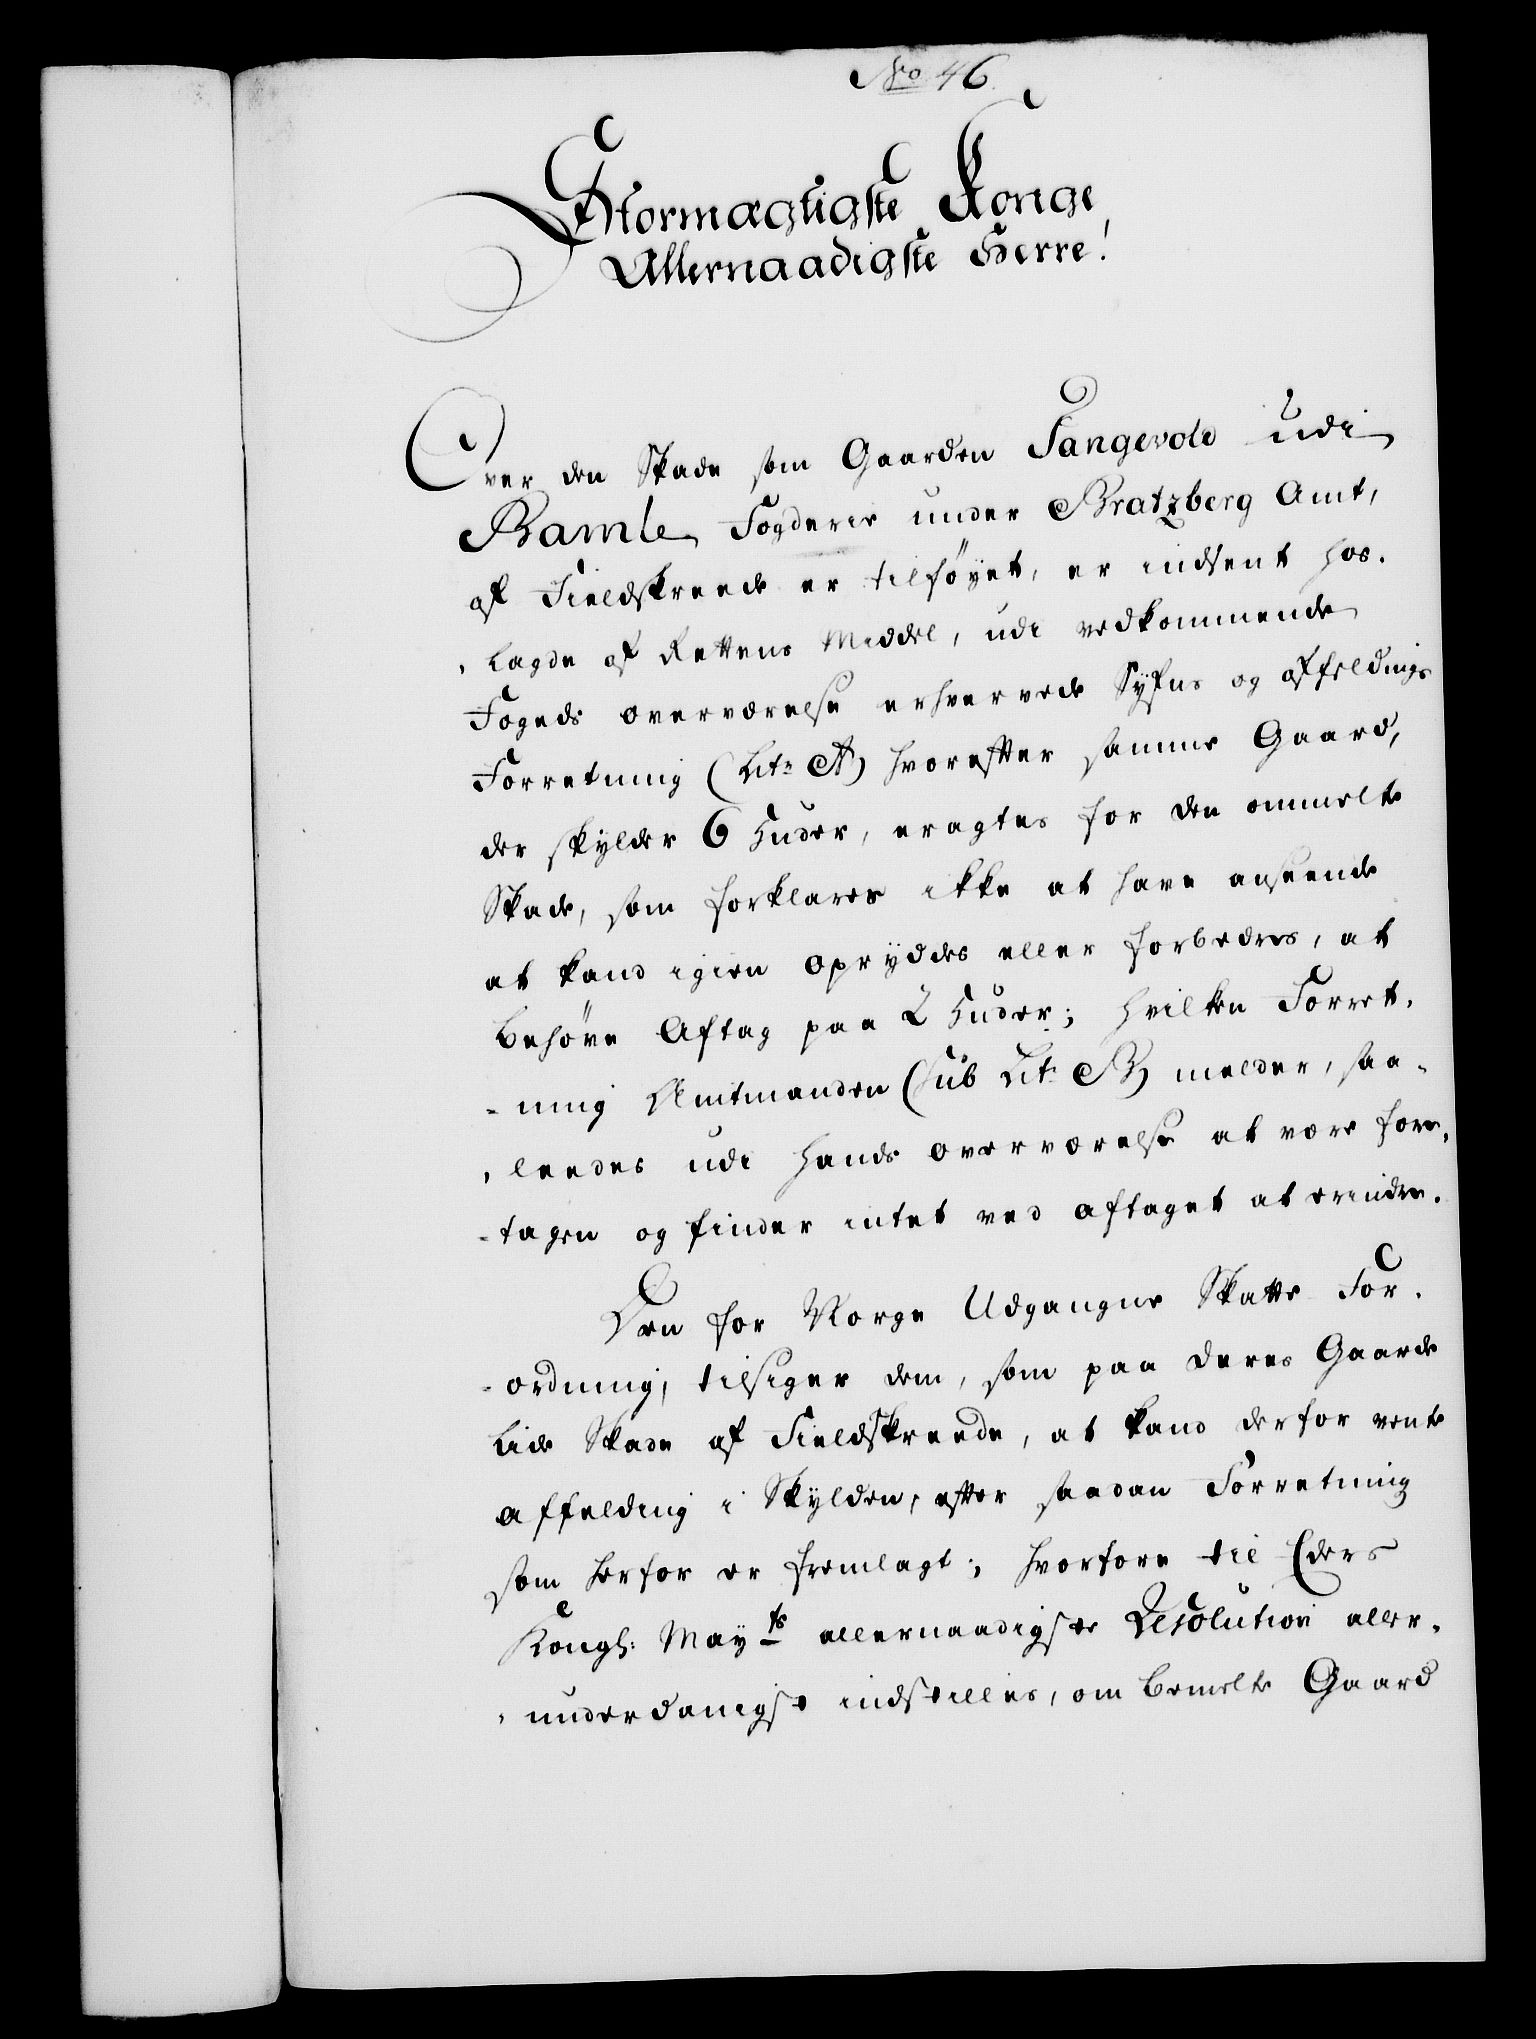 No 46.
Stormægtigste Konge
Allernaadigste Herre!
Over den Skade som Gaarden Tangevold udi
Bamle Fogderie under Bratzberg Amt,
af Fieldskreede er tilföyet, er indsent hos-
-lagde af Rettens Middel, udi vedkommende
Fogeds overværelse erhvervede Syfns og affeldnings
Forretning (Litr A) hvorefter samme Gaard,
der skylder 6 Huder, eragtes for den ommelte
Skade, som forklares ikke at have anseende
at kand igien opryddes eller forbedres, at
behöve Aftag paa 2 Huder; hvilken Forret-
-ning Amtmanden (sub Lit: B) melder, saa-
-leedes udi Hands overværelse at være fore-
-tagen og finder intet ved aftaget at erindre.
Den for Norge Udgangne Skatte For-
-ordning, tilsiger dem, som paa deres Gaarde
Lide Skade af Fieldskreede, at kand derfor vente
affelding i Skylden, efter saadan Forretning
som herfor er fremlagt; hvorfore til Eders
Kongl: Mayts allernaadigste Resolution aller-
-underdanigst indstilles, om bemelte Gaard